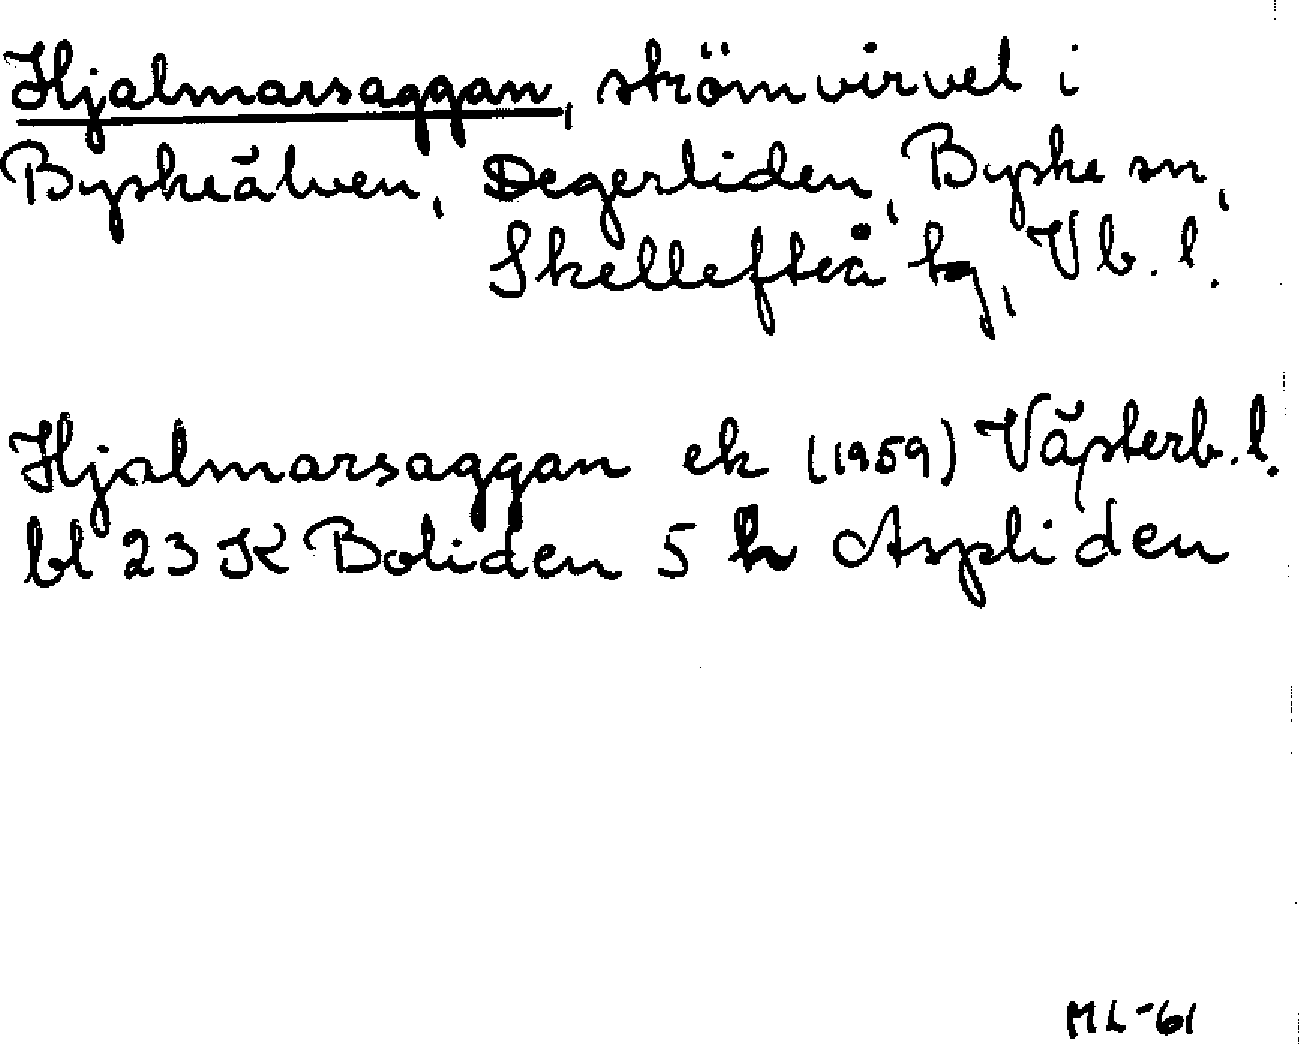 Hjalmarsaggan, strömvirvel i
Byskeälven, Degerliden, Byske sn,
Skellefteå tg, Vb. l.
Hjalmarsaggan ek (1959) Västerb. l.
bl 23 K Boliden 5 h Aspliden
ML-61